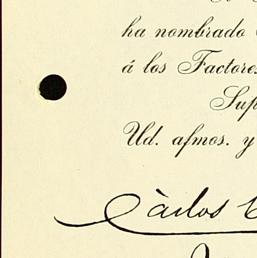 ha nombrado
á los Factores
Sup
Ud. afmos. y
Carlos